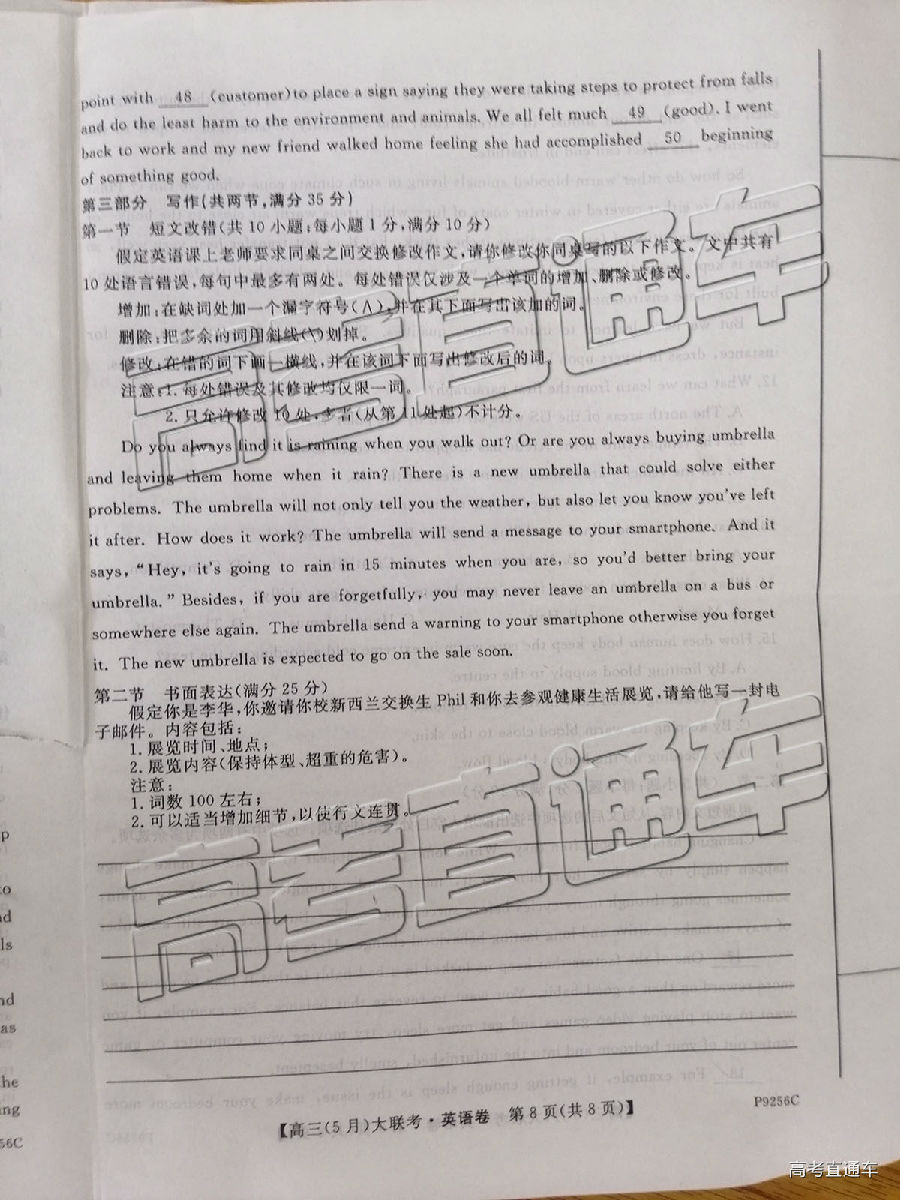 point with 48 (customer)to place a sign saying they were taking steps to protect from falls
and do the least harm to the environment and animals. We all felt much 49 (good). I went
back to work and my new friend walked home feeling she had accomplished 50 beginning
of something good.
第三部分 写作(共两节,满分 35 分)
第一节 短文改错(共 10 小题;每小题 1 分,满分 10 分)
假定英语课上老师要求同桌之间交换修改作文,请你修改你同桌写的以下作文。文中共有
10 处语言错误,每句中最多有两处。每处错误仅涉及一个单词的增加、删除或修改。
增加:在缺词处加一个漏字符号(∧),并在其下面写出该加的词。
删除:把多余的词用斜线(\)划掉。
修改:在错的词下画一横线,并在该词下面写出修改后的词。
注意:1. 每处错误及其修改均仅限一词。
2. 只允许修改 10 处,多者(从第 11 处起)不计分。
Do you always find it is raining when you walk out? Or are you always buying umbrella
and leaving them home when it rain? There is a new umbrella that could solve either
problems. The umbrella will not only tell you the weather, but also let you know you've left
it after. How does it work? The umbrella will send a message to your smartphone. And it
says, “Hey, it's going to rain in 15 minutes when you are, so you'd better bring your
umbrella.” Besides, if you are forgetfully, you may never leave an umbrella on a bus or
somewhere else again. The umbrella send a warning to your smartphone otherwise you forget
it. The new umbrella is expected to go on the sale soon.
第二节 书面表达(满分 25 分)
假定你是李华,你邀请你校新西兰交换生 Phil 和你去参观健康生活展览,请给他写一封电
子邮件。内容包括:
1. 展览时间、地点;
2. 展览内容(保持体型、超重的危害)。
注意:
1. 词数 100 左右;
2. 可以适当增加细节,以使行文连贯。
【高三(5 月)大联考·英语卷 第 8 页(共 8 页)】
P9256C
高考直通车
高考直通车
高考直通车